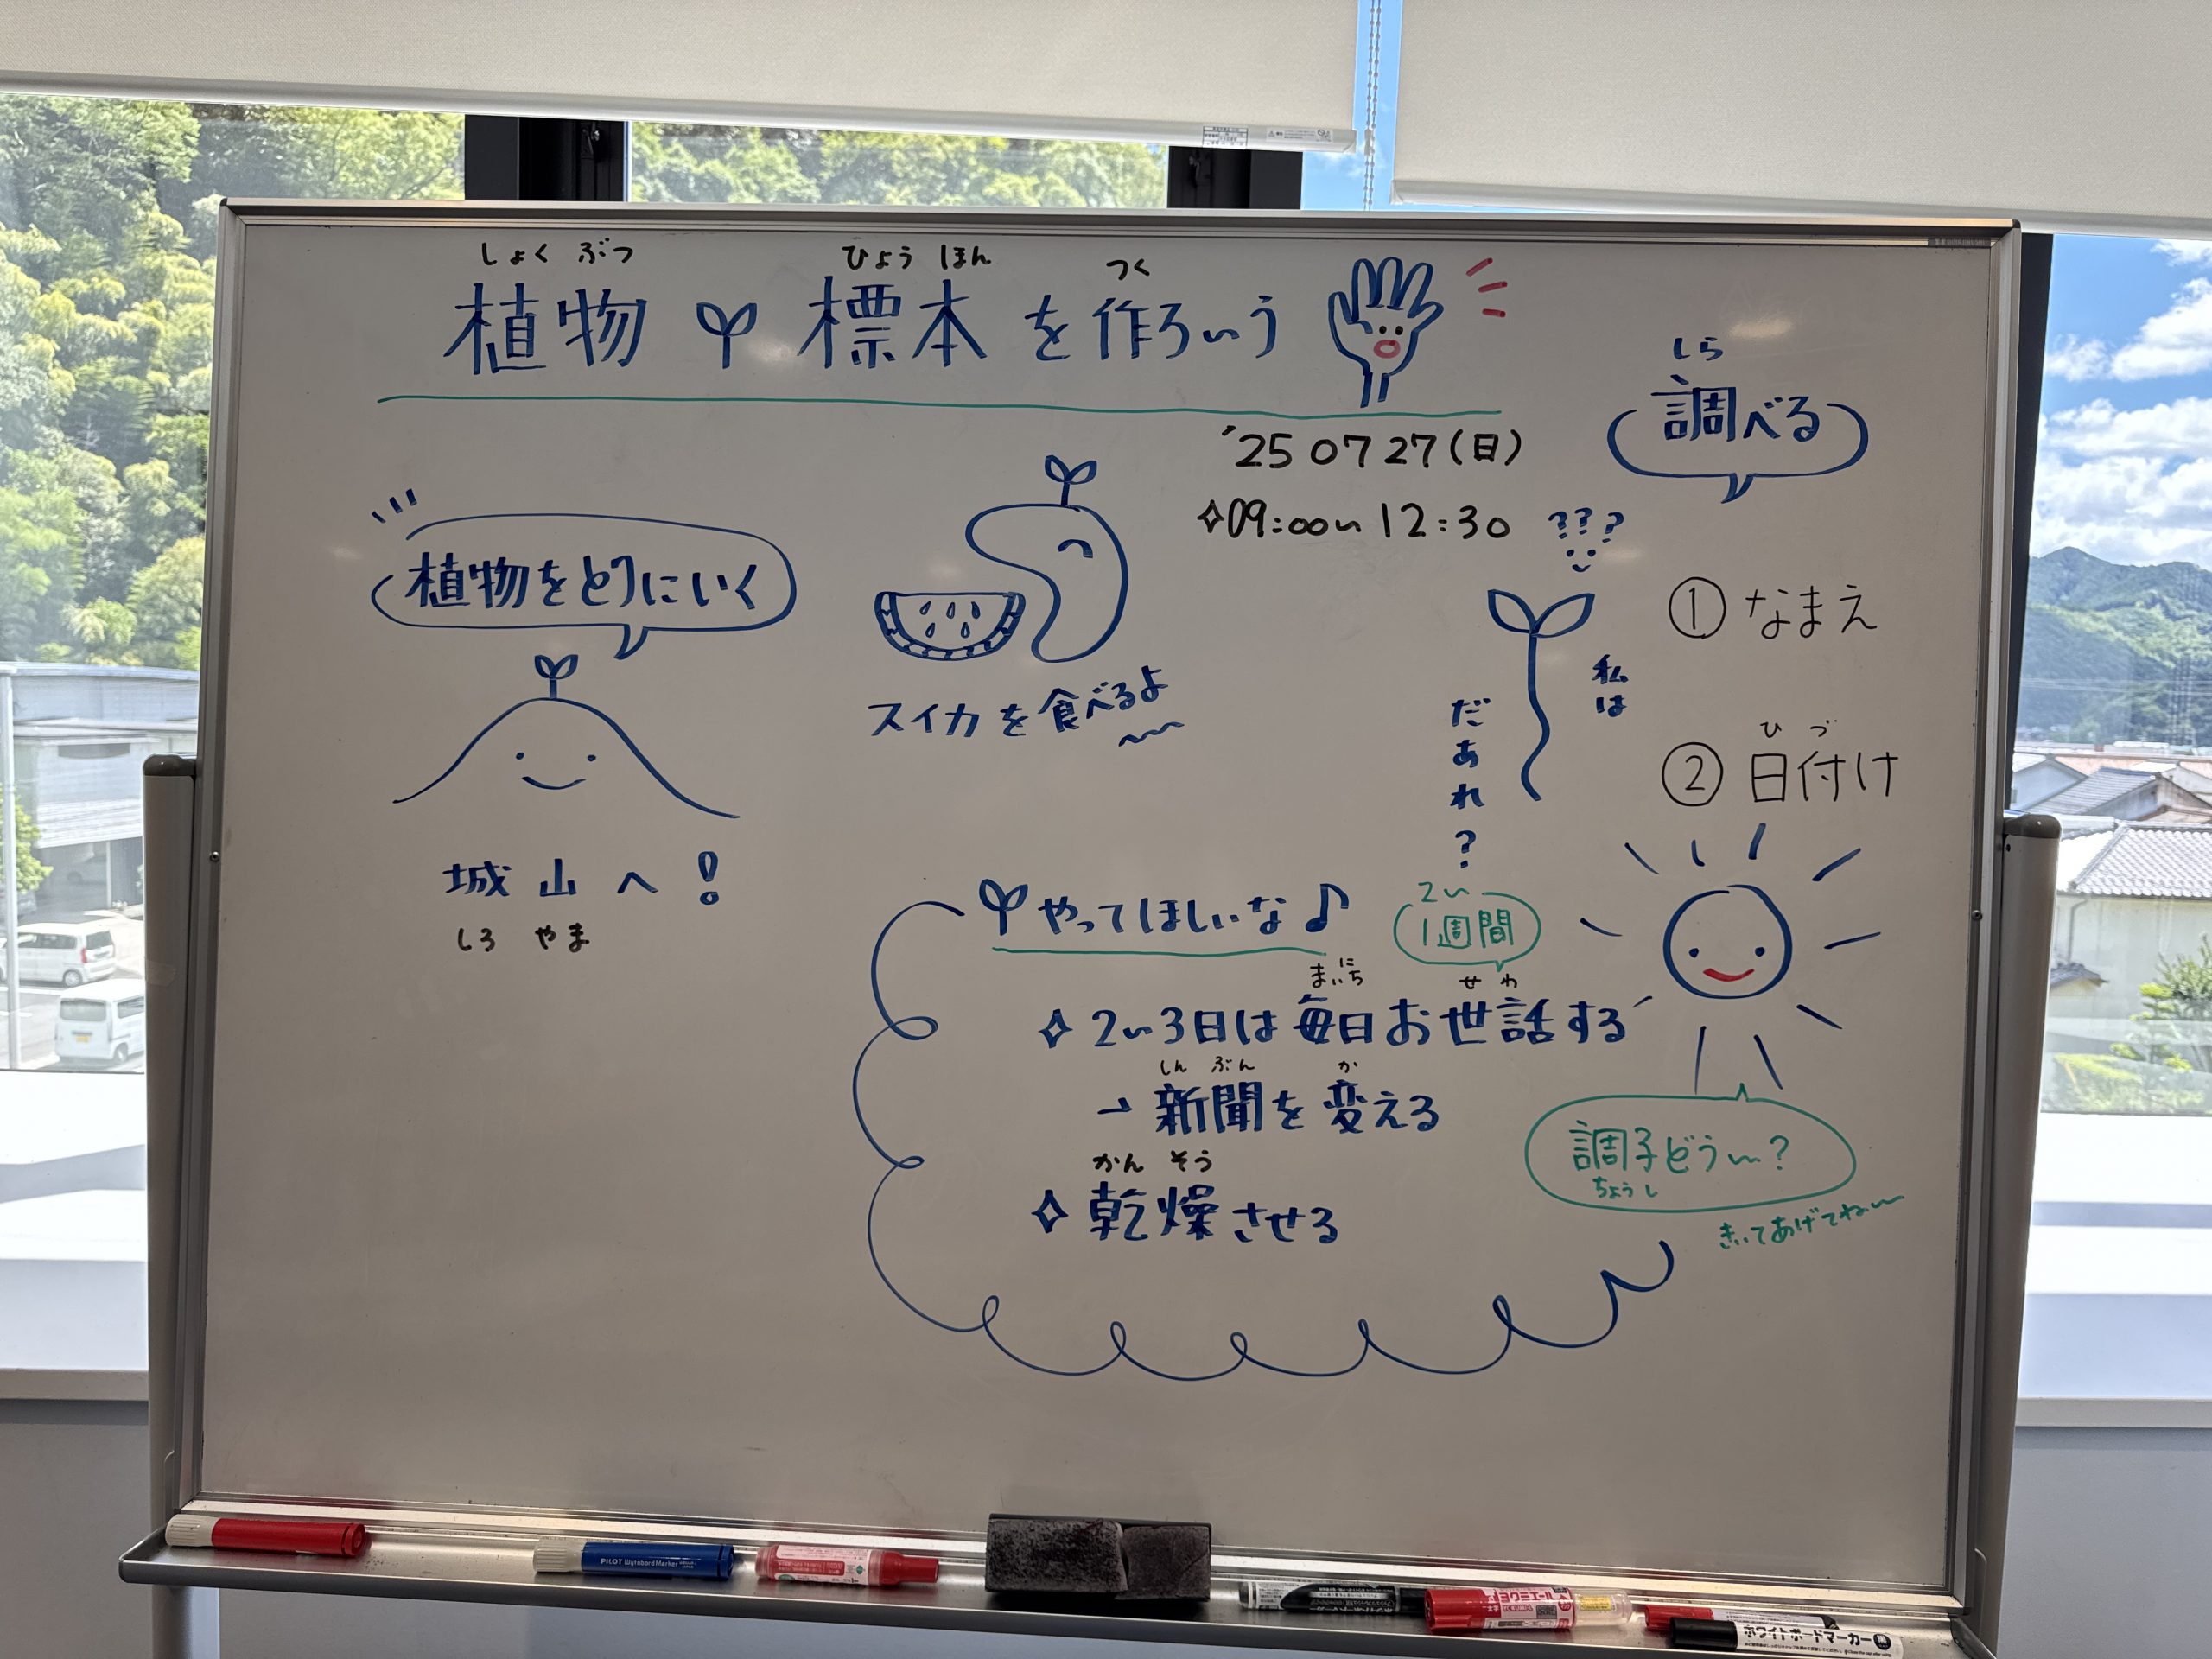 しょく ぶつ ひょう ほん つく
植物 標本 を 作ろ〜う
'25 07 27(日)
09:00〜12:30
植物をとりにいく
城山へ!
しろ やま
スイカを食べるよ
〜〜
しら
調べる
???
私は
だあれ?
① なまえ
ひ づ
② 日付け
やってほしいな♪
2〜
1週間
まいにち せ わ
2〜3日は毎日お世話する
しん ぶん か
→新聞を変える
かん そう
乾燥させる
調子どう〜?
ちょうし
きいてあげてね〜
PILOT WytebordMarker
ヨクミエール
ホワイトボードマーカー